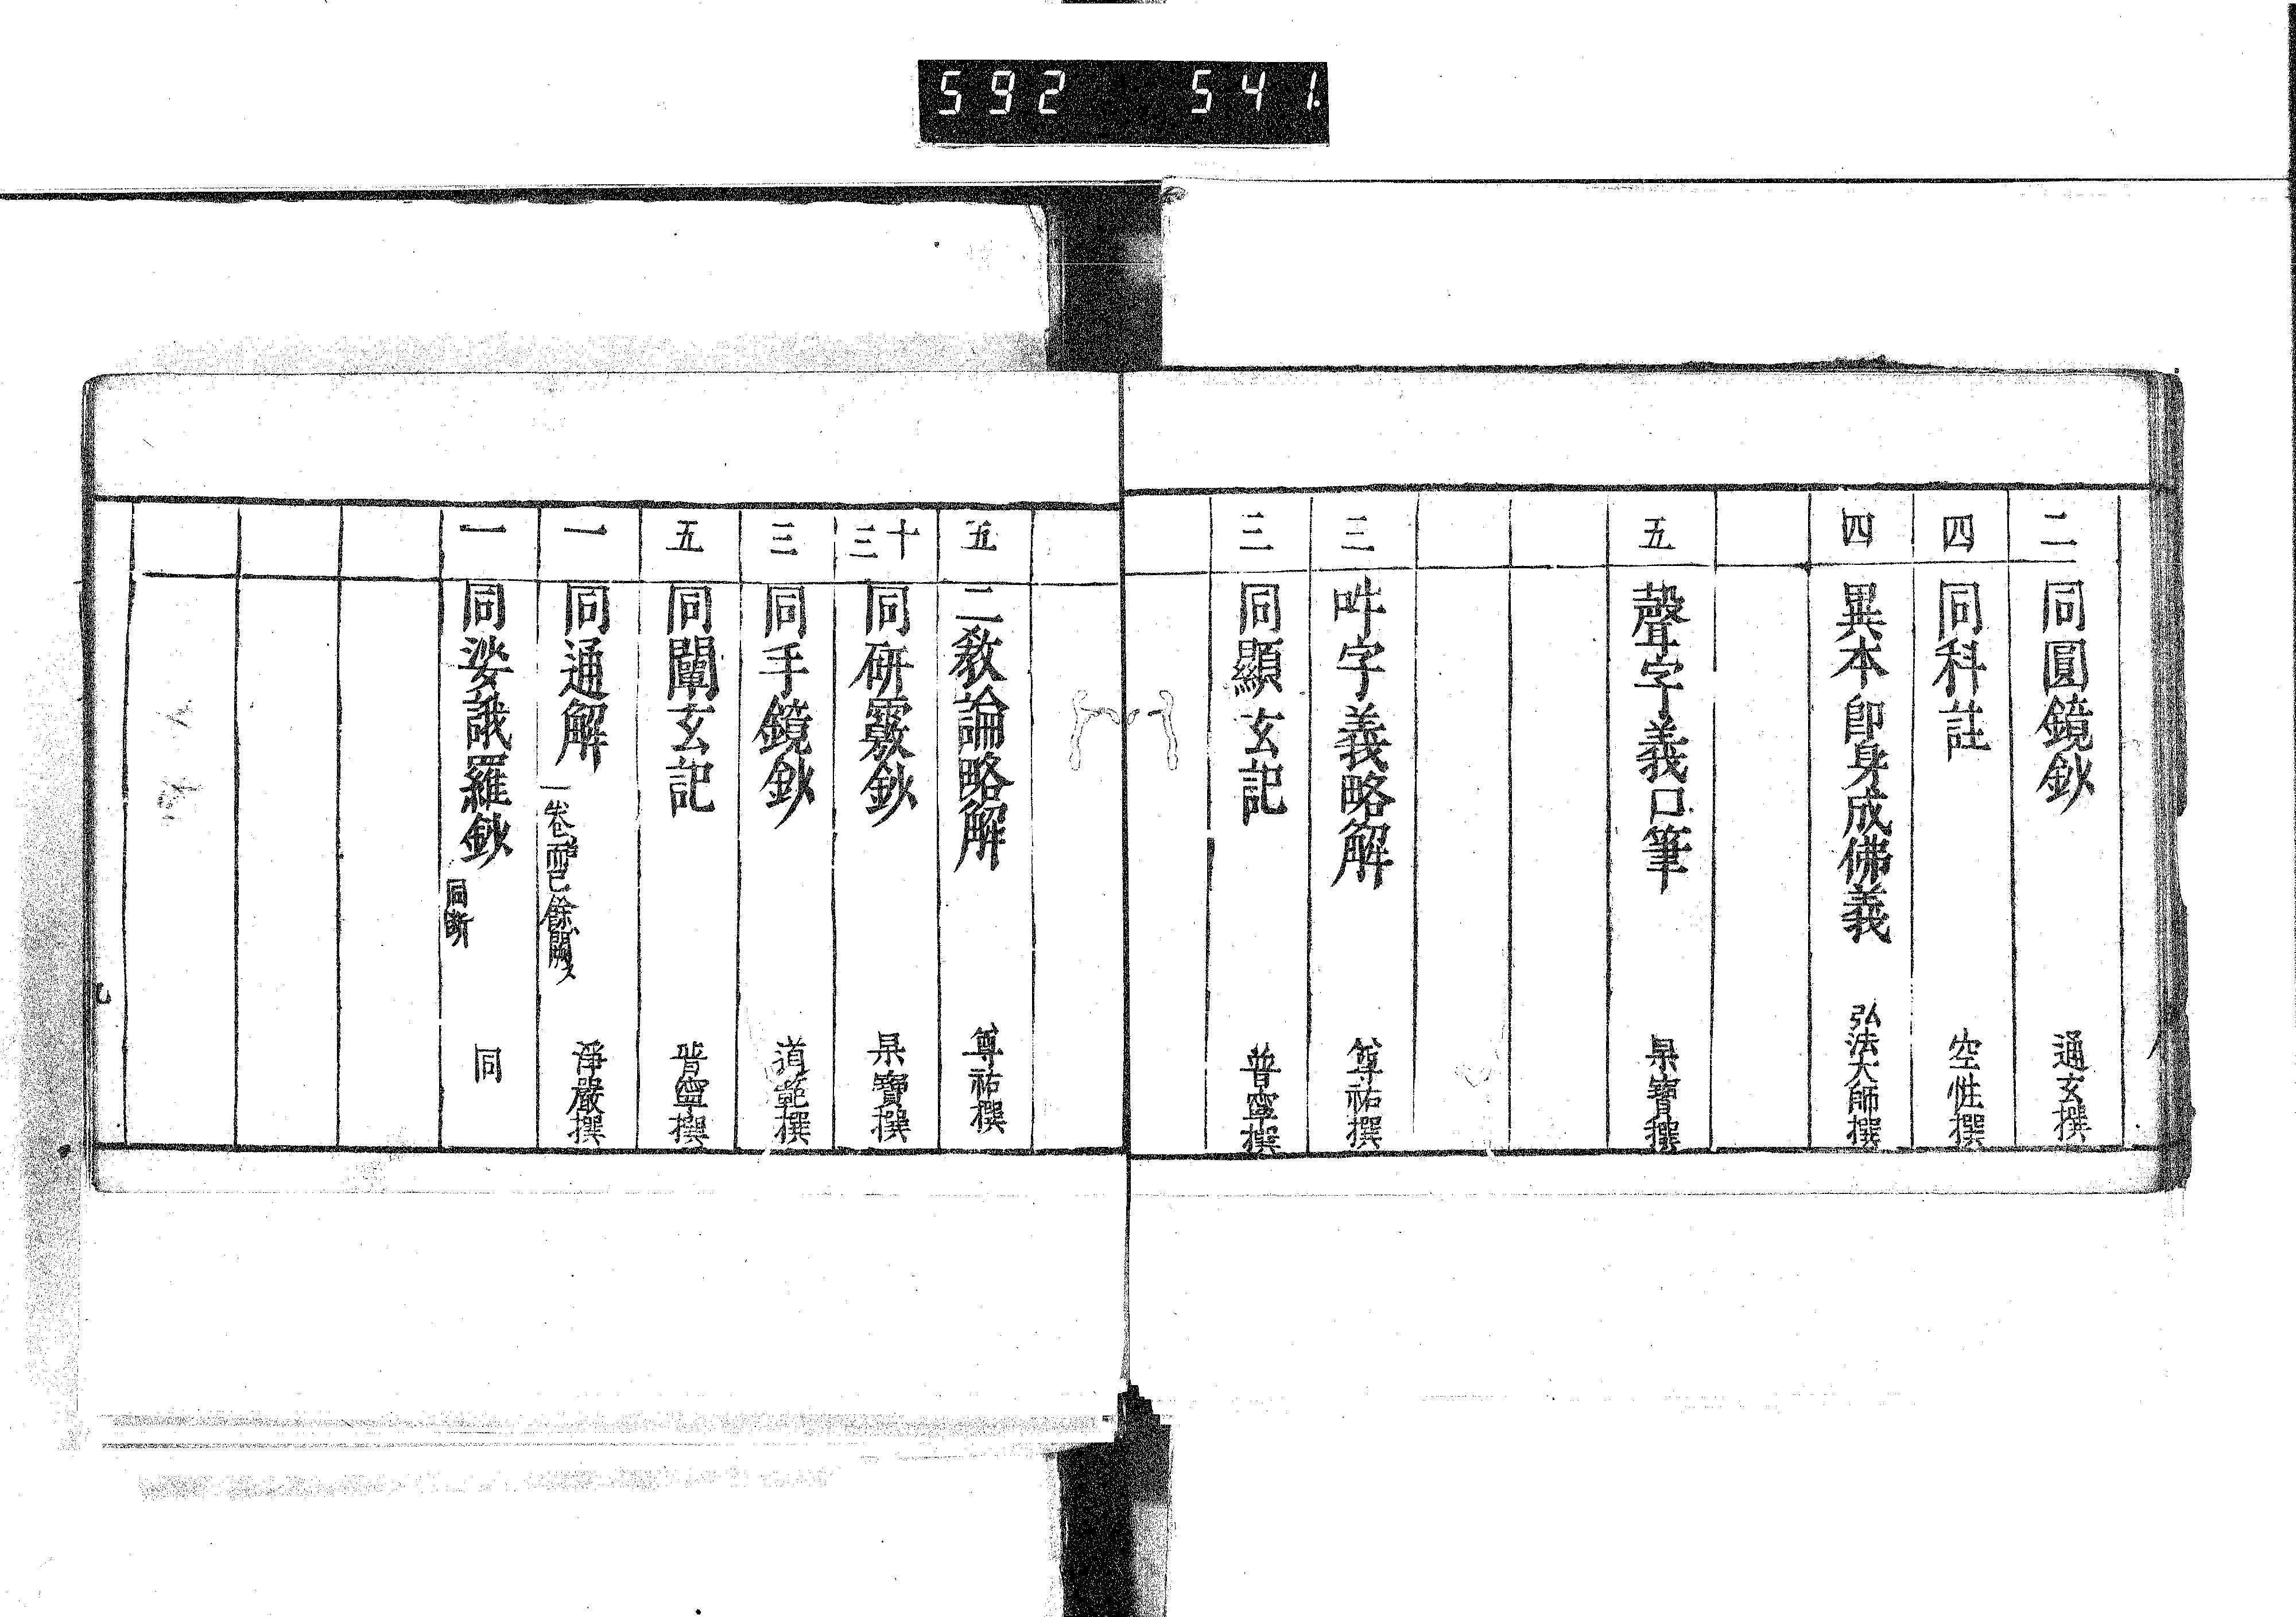 592 541.
二 同圓鏡鈔 通玄撰
四 同科註 空性撰
四 異本即身成佛義 弘法大師撰
五 聲字義口筆 杲寶撰
三 吽字義略解 尊祐撰
三 同顯玄記 普寧撰
五 二教論略解 尊祐撰
十三 同研覈鈔 杲寶撰
三 同手鏡鈔 道範撰
五 同闡玄記 普寧撰
一 同通解 一卷而已餘闕ス 淨嚴撰
一 同娑誐羅鈔 同斷 同
九